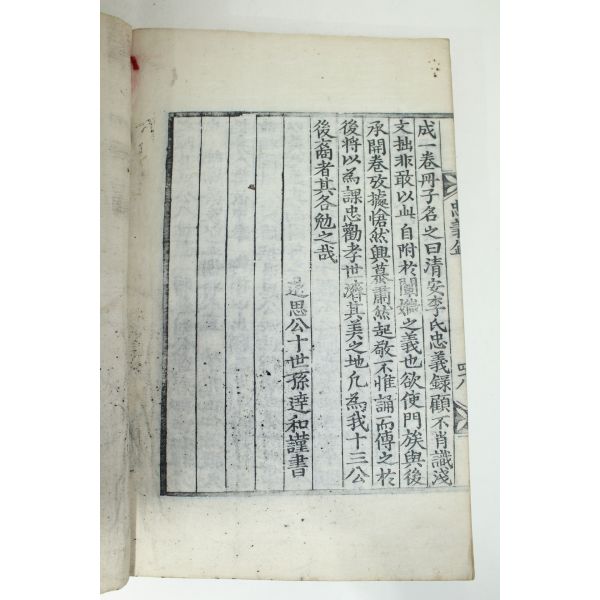 忠義錄
四八
成一卷冊子名之曰清安李氏忠義録顧不肖識淺
文拙非敢以此自附於闡之義也欲使門族與後
承開卷攷據愴然興慕肅然起敬不惟誦而傳之於
後將以為課忠勸孝世濟其美之地凡為我十三公
後裔者其各勉之哉
思公十世孫達和謹書